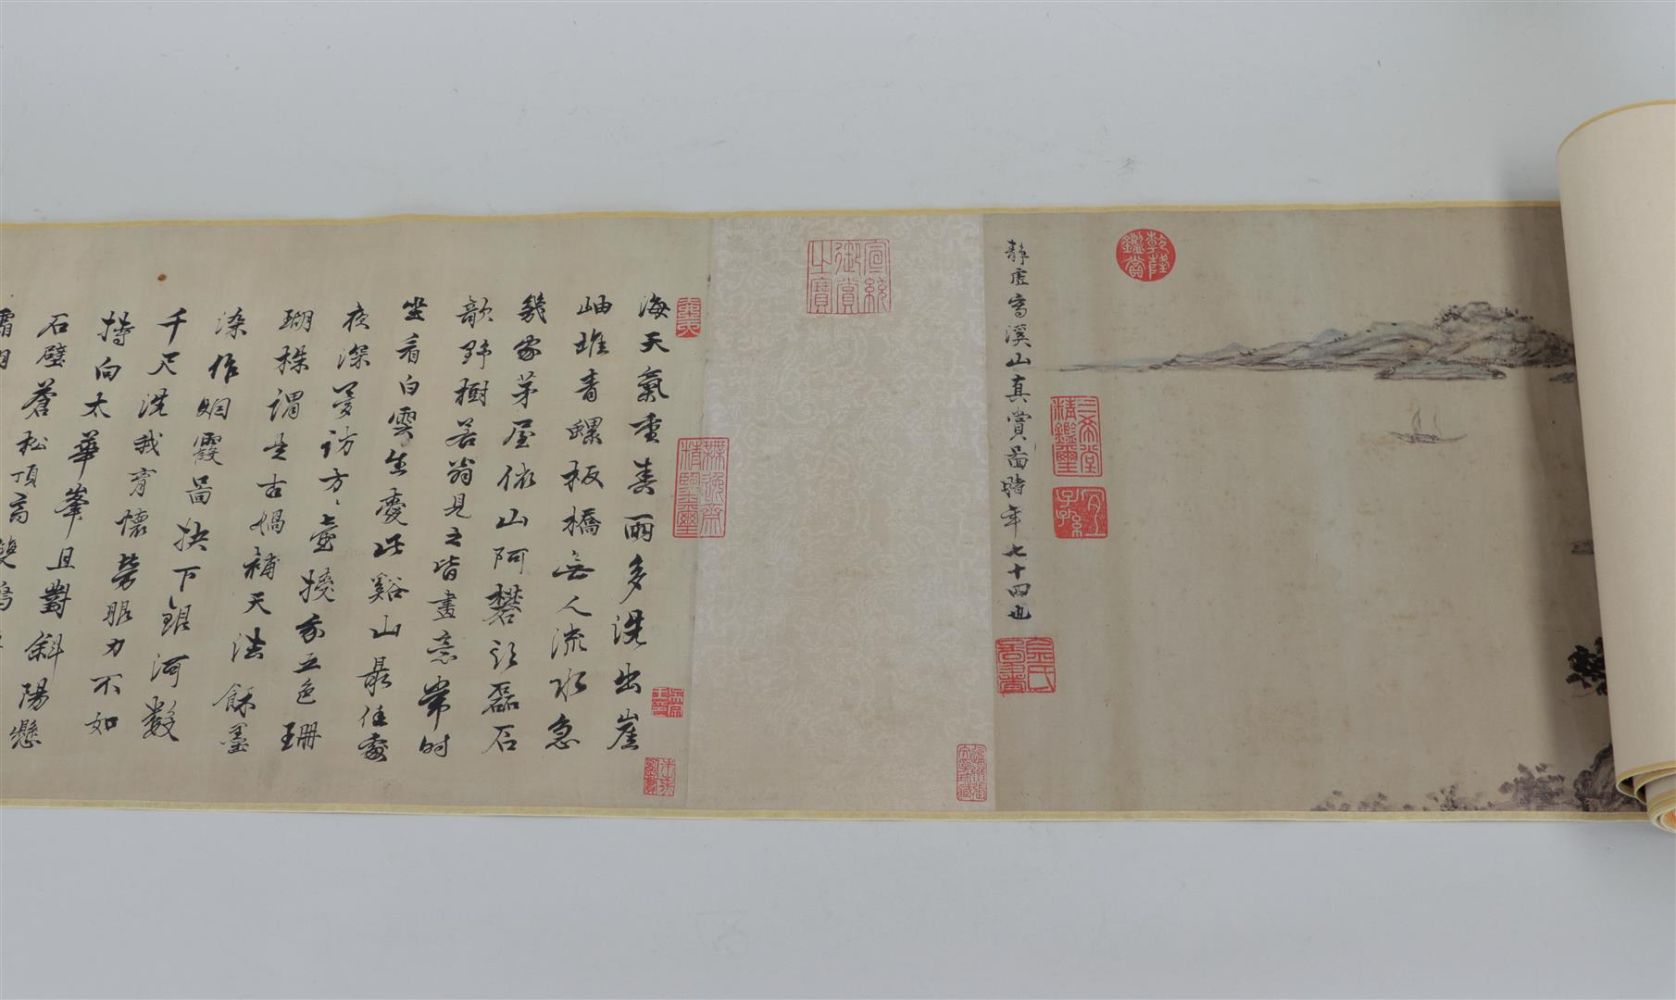 靜虛寫溪山真賞啚時年七十四也
乾隆鑑賞
三希堂精鑑璽
宜子孫
宣統御賞之寶
海天氣重春雨多洗出崖
岫堆青螺板橋無人流水急
幾家茅屋依山阿礬頭磊石
歌野樹若翁見之皆畫意常時
坐看白雲生愛此谿山最佳處
夜深夢訪方方壺換我五色珊
瑚株謂是古媧補天法餘墨
染作烟霞啚抉下銀河數
千尺洗我胷懷勞眼力不如
搏向太華峯且對斜陽懸
石壁蒼松頂高雙